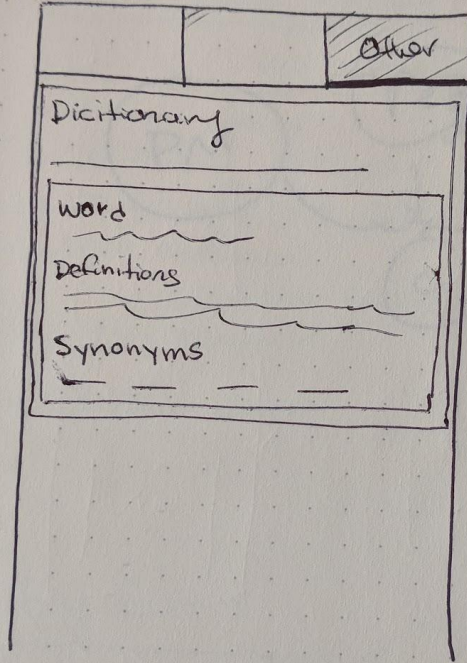 Other
Dicitionary
Word
Definitions
Synonyms